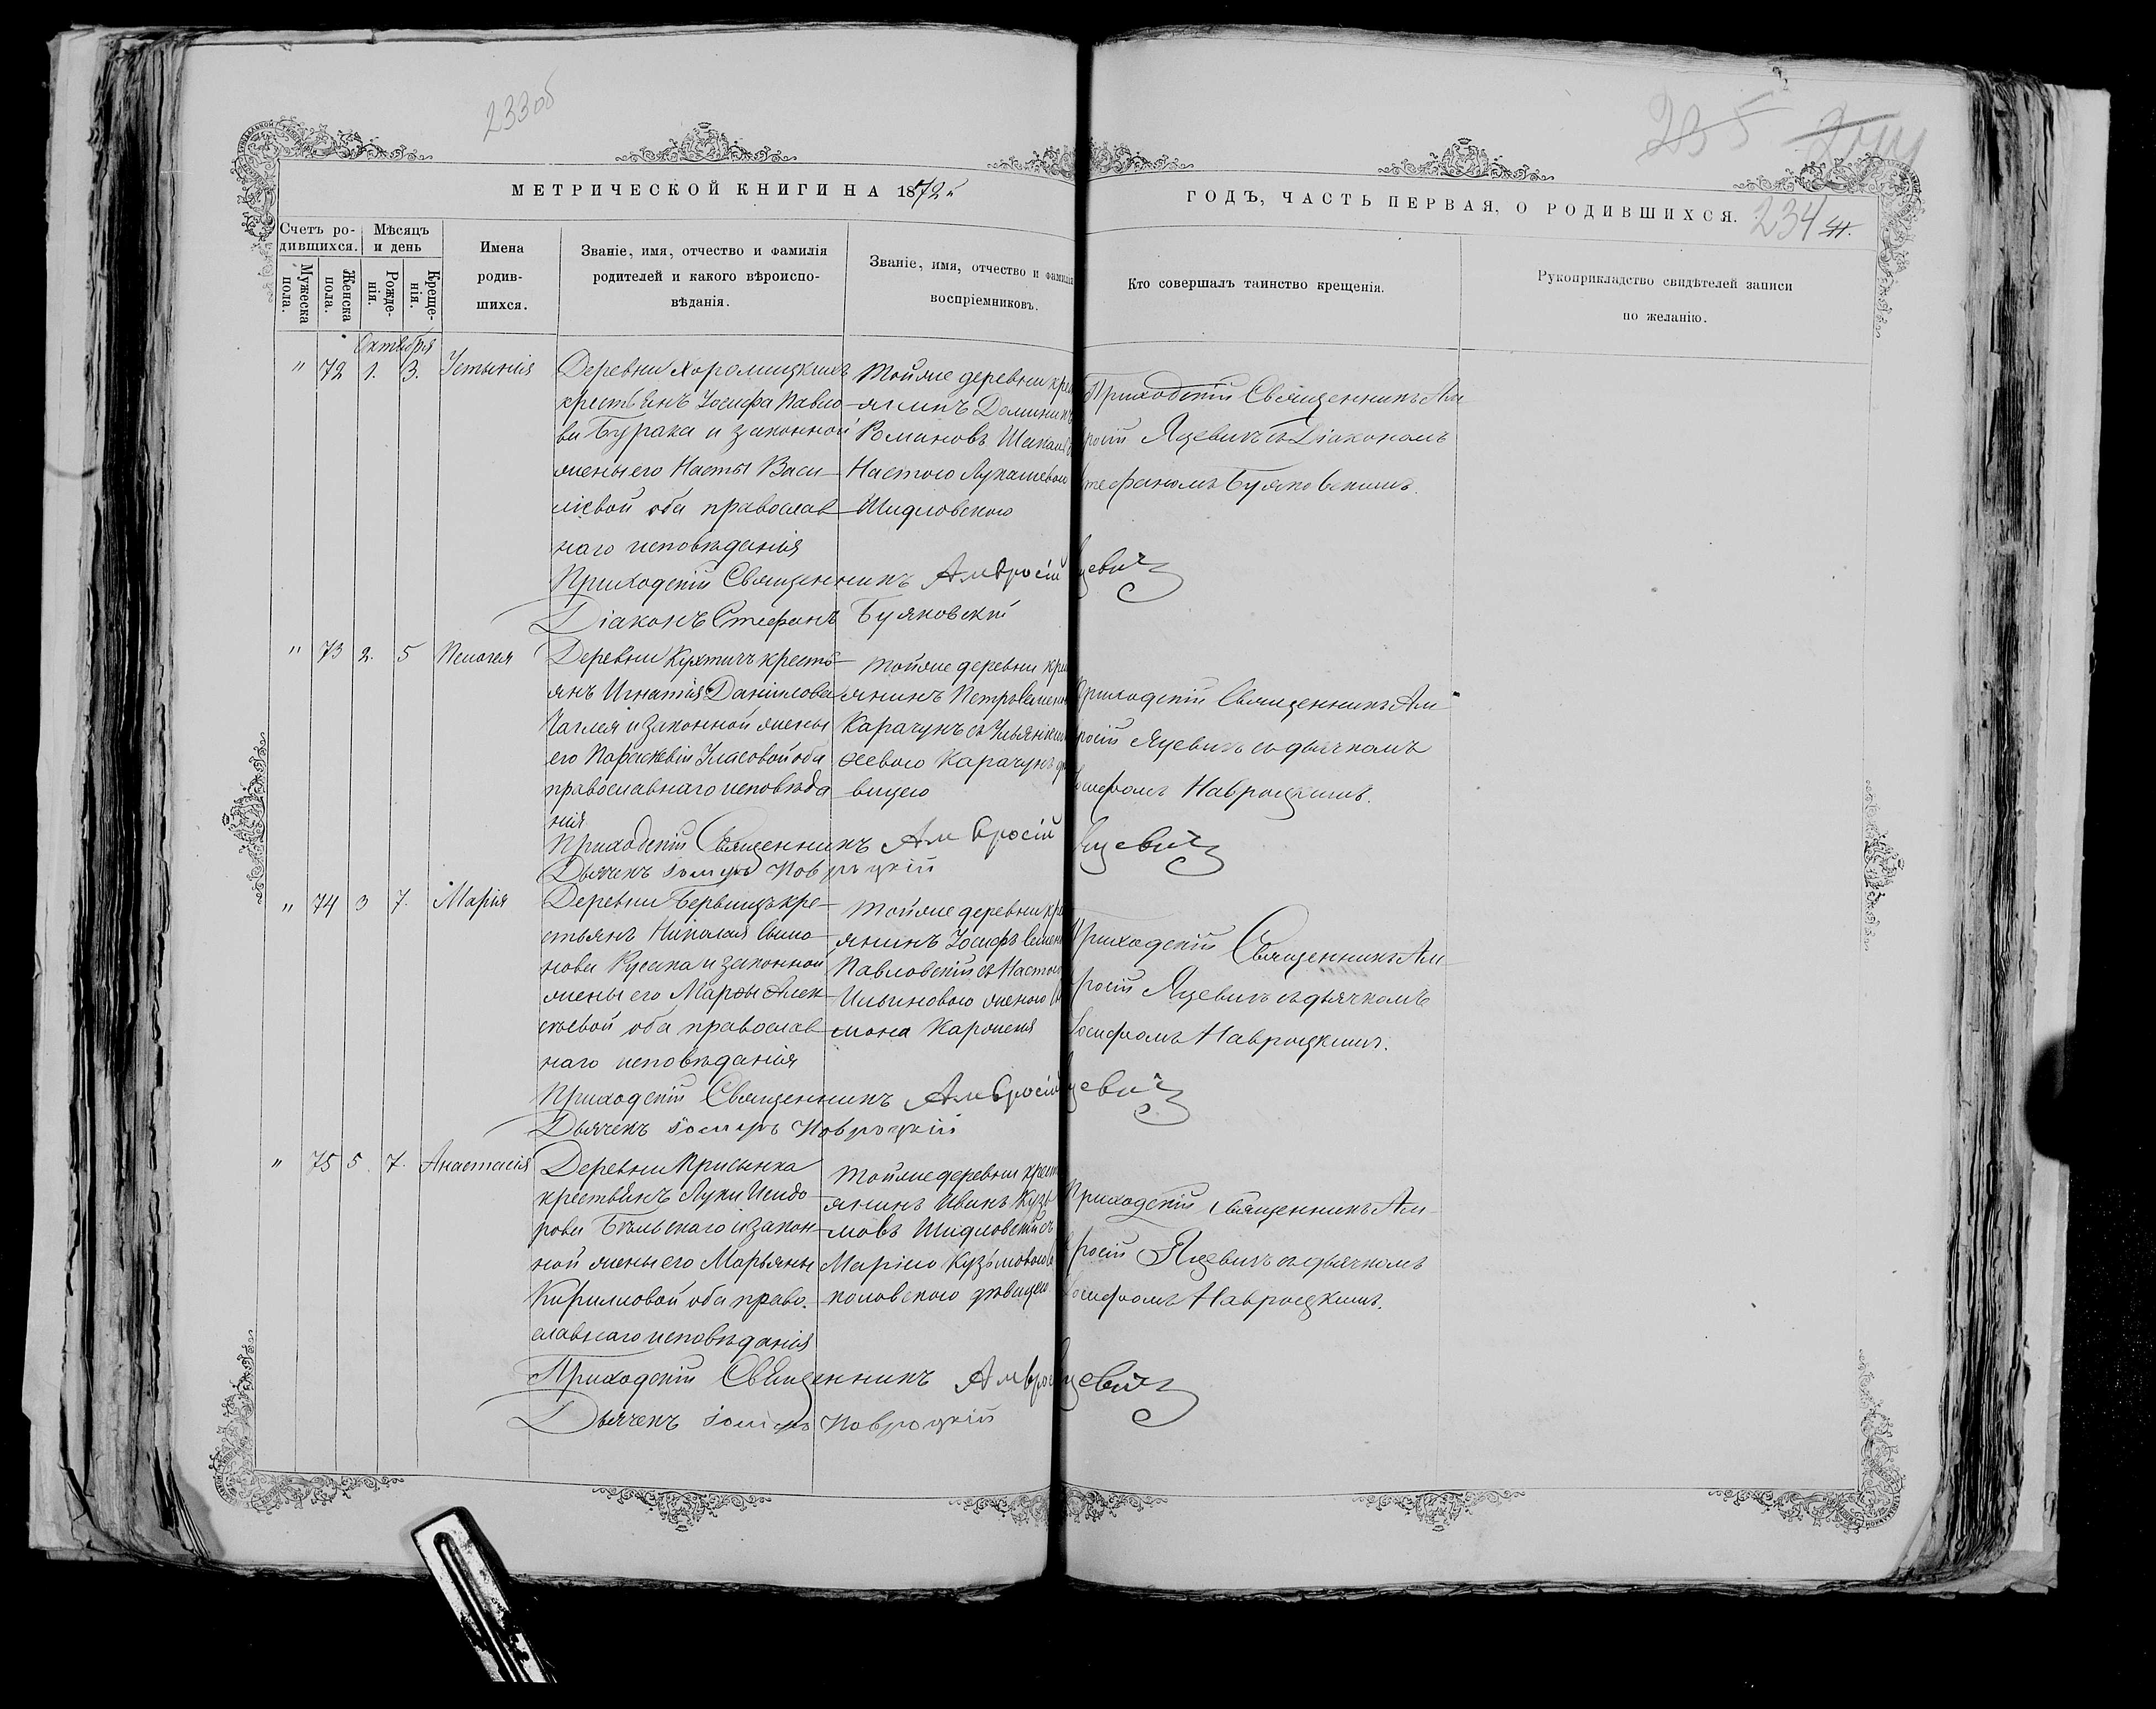 233об
235
234
МЕТРИЧЕСКОЙ КНИГИ НА 1872й
ГОДЪ, ЧАСТЬ ПЕРВАЯ, О РОДИВШИХСЯ.
Счетъ ро-
дившихся.
Мужеска
пола.
Женска
пола.
Мѣсяцъ
и день
Рожде-
нія.
Креще-
нія.
Имена
родив-
шихся.
Званіе, имя, отчество и фамилія
родителей и какого вѣроиспо-
вѣданія.
Званіе, имя, отчество и фамилія
воспріемниковъ.
Кто совершалъ таинство крещенія.
Рукоприкладство свидѣтелей записи
по желанію.
Октября
" 72 1. 3. Устинія
Деревни
крестьянъ Іосифа Павло-
ва Бурака и законной
жены его Насты Васи-
ліевой оба православ-
наго исповѣданія
Тойже деревни
янинъ
Романовъ
Настою
Шидловскою
Приходскій Священникъ Ам
росій Яцевичъ съ Діакономъ
тефаномъ Буяковскимъ.
Приходскій Священникъ Амвросій Яцевичъ
Діаконъ Стефанъ Буяковскій
" 73 2. 5 Пелагея
Деревни Кухтичъ кресть-
янъ Игнатія Данилова
и законной жены
его Параскевіи оба
православнаго исповѣда
нія
Тойже деревни
янинъ Петръ
Карачунъ съ
Карачунъ
вицею
Приходскій Священникъ Ам
росій Яцевичъ съ дьячкомъ
Іосифомъ Навроцкимъ.
Приходскій Священникъ Амвросій Яцевичъ
Дьячекъ Іосифъ Навроцкій
" 74 3 7. Марія
Деревни кре-
стьянъ Николая Симо-
нова Русака и законной
жены его Марты Алек-
сѣевой оба православ-
наго исповѣданія
Тойже деревни
янинъ Іосифъ
Павловскій съ Настою
Ильиновою женою
мона
Приходскій Священникъ Ам
росій Яцевичъ съ дьячкомъ
Іосифомъ Навроцкимъ.
Приходскій Священникъ Амвросій Яцевичъ
Дьячекъ Іосифъ Навроцкій
" 75 5. 7. Анастасія
Деревни Присынка
крестьянъ Луки Исидо-
рова Бѣльскаго и закон-
ной жены его Марьяны
Кириловой оба право-
славнаго исповѣданія
Тойже деревни крест
янинъ Иванъ Кузь
мовъ Шидловскій съ
Маріею Кузьмовою
коловскою дѣвицею
Приходскій Священникъ Ам
росій Яцевичъ съ дьячкомъ
Іосифомъ Навроцкимъ.
Приходскій Священникъ Амвросій Яцевичъ
Дьячекъ Іосифъ Навроцкій